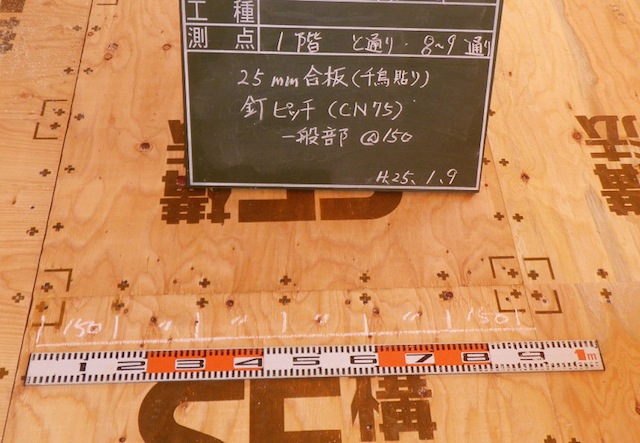 工種
測点 1階 と通り・8~9通り
25mm合板(千鳥貼り)
釘ピッチ(CN75)
一般部 @150
H.25.1.9
SE構
構法
150 〃 〃 〃 〃 150
1 2 3 4 5 6 7 8 9 1m
SE構